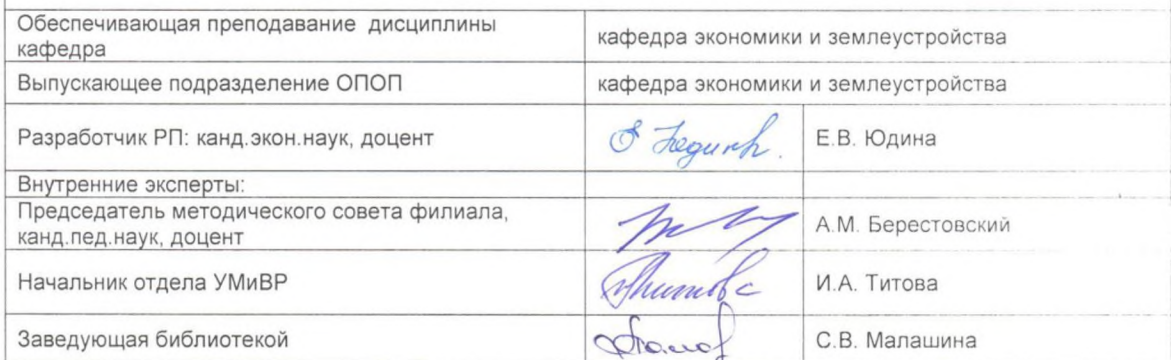 Обеспечивающая преподавание дисциплины
кафедра
кафедра экономики и землеустройства
Выпускающее подразделение ОПОП
кафедра экономики и землеустройства
Разработчик РП: канд.экон.наук, доцент
Е.В. Юдина
Внутренние эксперты:
Председатель методического совета филиала,
канд.пед.наук, доцент
А.М. Берестовский
Начальник отдела УМиВР
И.А. Титова
Заведующая библиотекой
С.В. Малашина